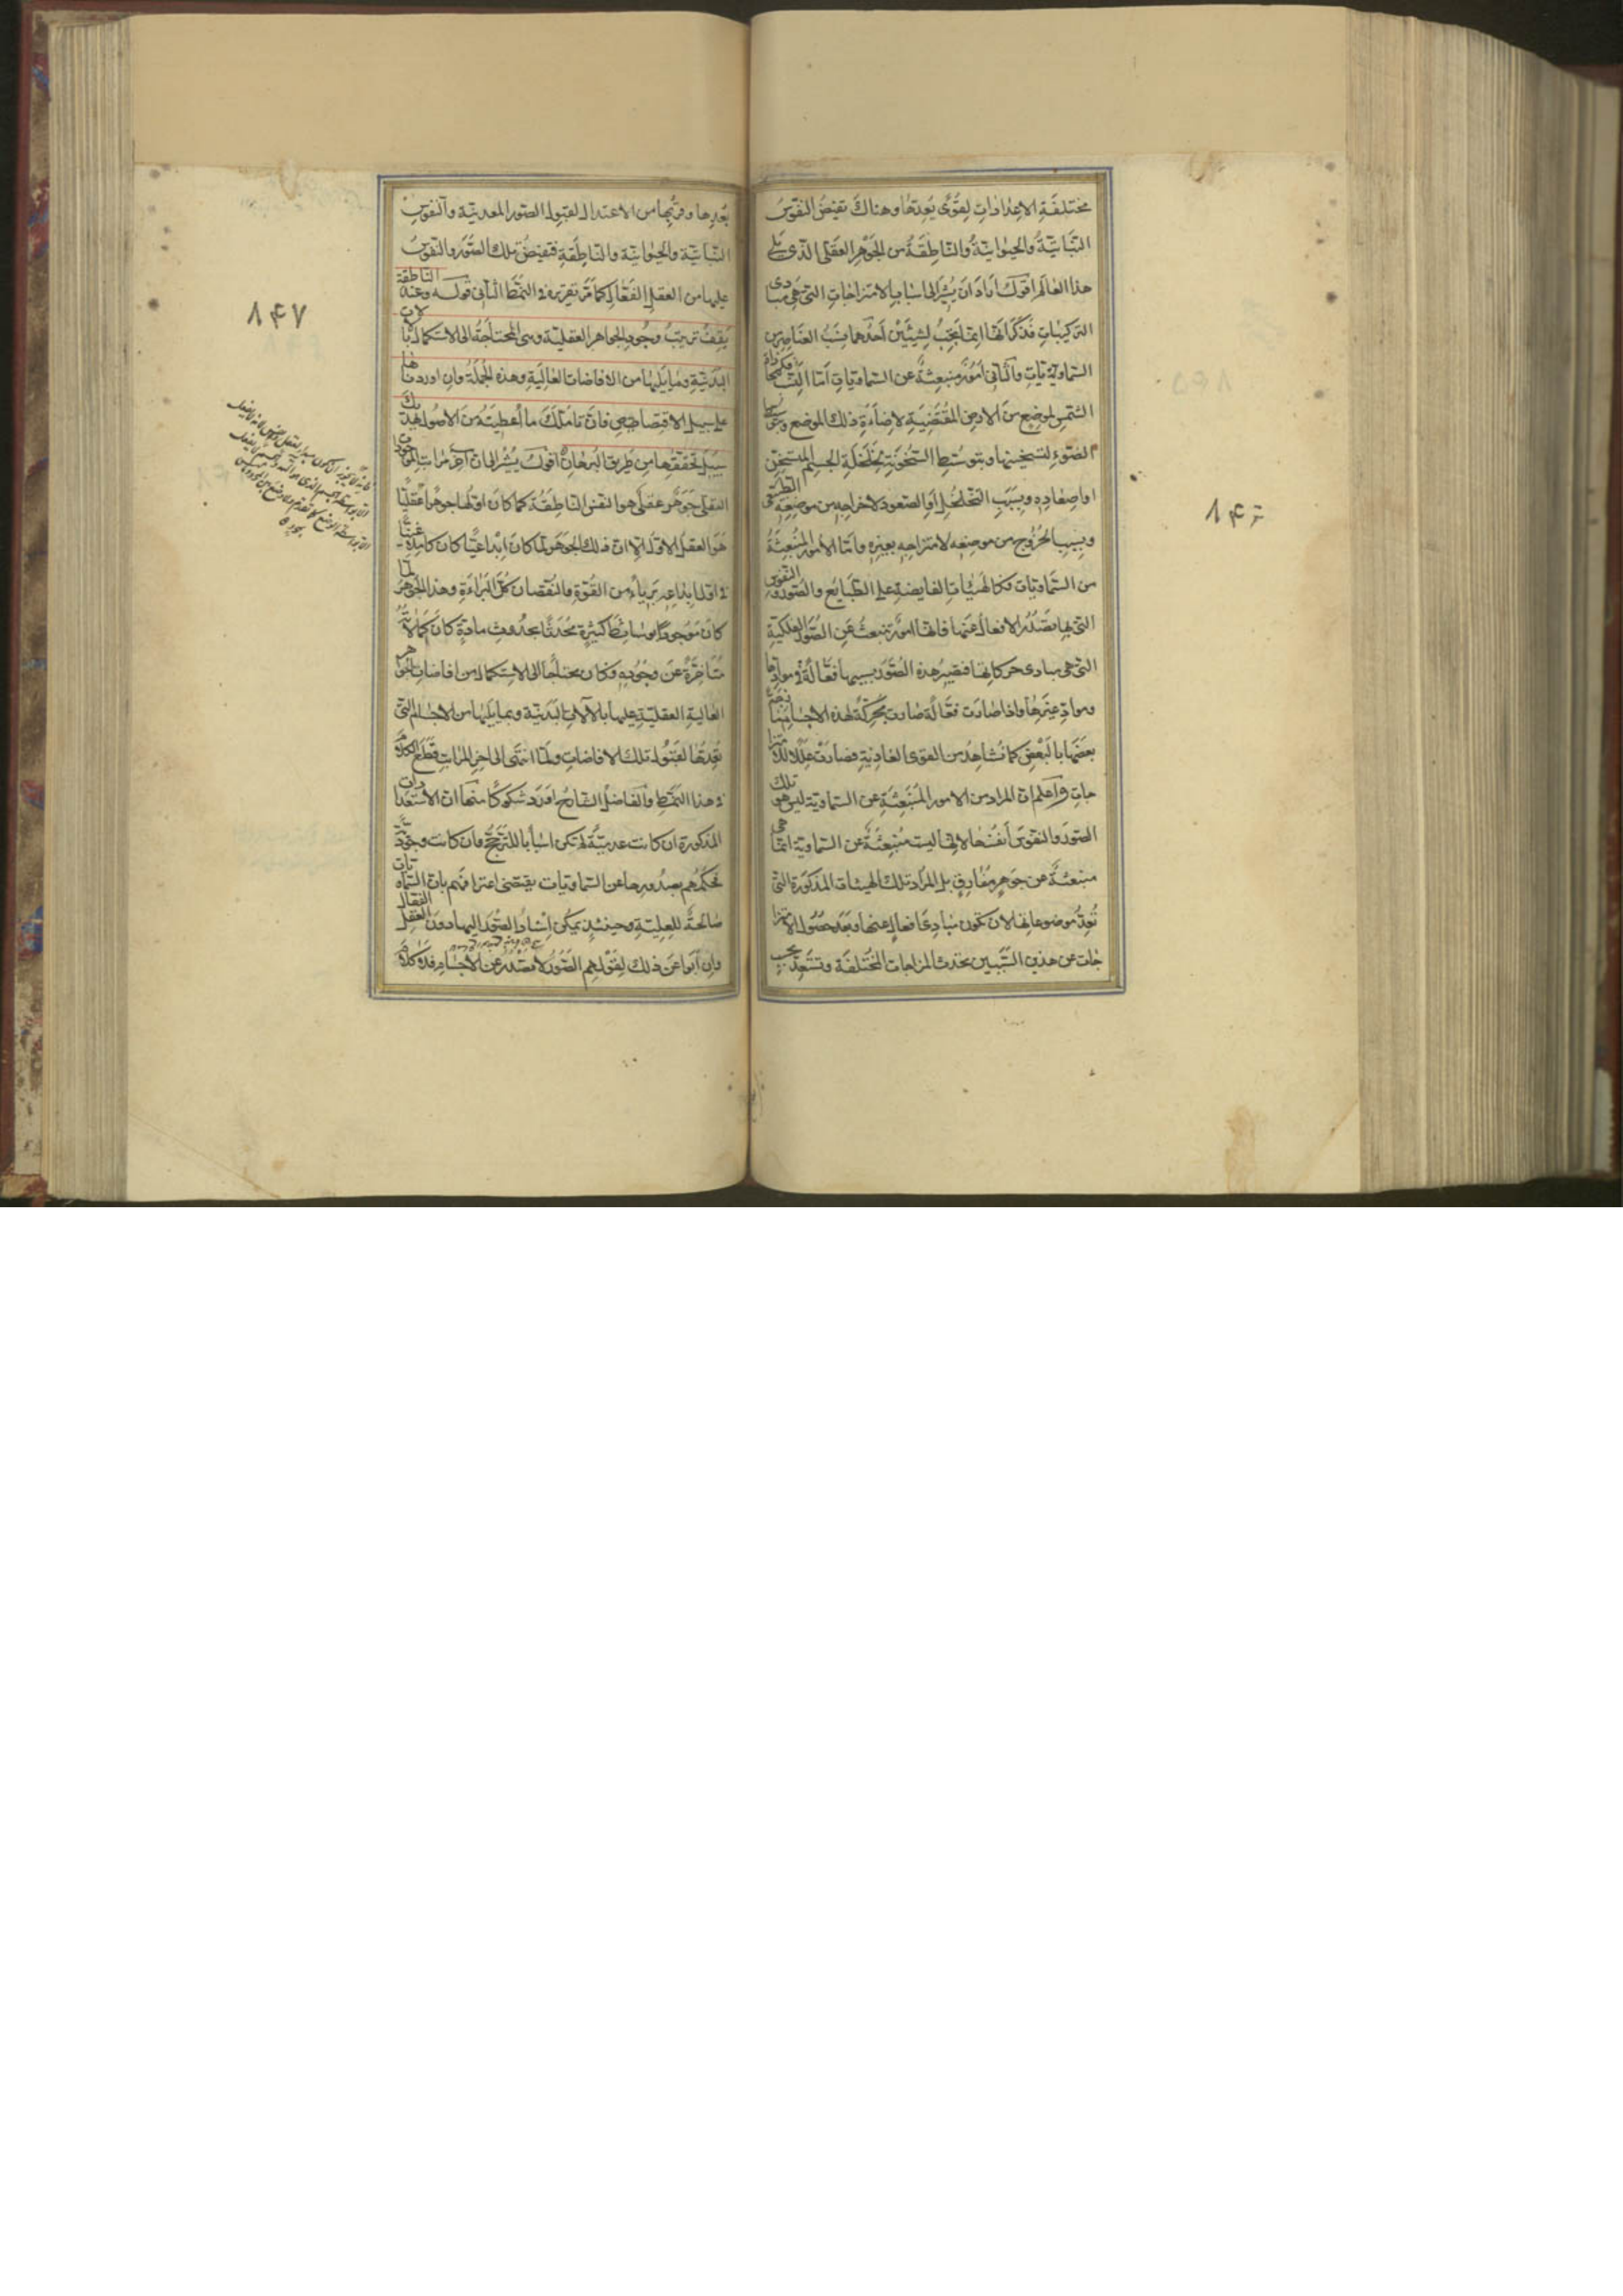 مختلفة الاعدادات لقوى يعدها وهناك تفيض النفوس
النباتية والحيوانية والناطقة من الجوهر العقلى الذى يلى
هذا العالم اقول اراد ان يشير الى اسباب الامتزاجات التى هى مبادى
التركيبات فذكر انها انما تجب لشيئين احدهما نسب العناصر من
السماويات والثانى امور منبعثة عن السماويات اما النسب فكمحاذاة
الشمس لموضع من الارض المقتضية لاضاءة ذلك الموضع
الضوء لتسخينها وبتوسط السخونة لخلخلة الجسم المتسخن
او اصعاده وبسبب التخلخل او الصعود لاخراجه من موضعه الطبيعى
وبسبب الخروج من موضعه لامتزاجه بغيره واما الامور المنبعثة
من السماويات فكالهيئات الفايضة على الطبايع والصور والنفوس
التى بها تصدر الافعال عنها فانها امور تنبعث عن الصور الفلكية
التى هى مبادى حركاتها فتصير هذه الصور بسببها فعالة فى موادها
ومواد غيرها واذا صارت فعالة صارت محركة لهذه الاجسام
بعضها بالبعض كما نشاهد من القوى الغاذية فصارت عللا للامتزا
جات واعلم ان المراد من الامور المنبعثة عن السماوية ليس هو تلك
الصور والنفوس انفسها لانها ليست منبعثة عن السماوية انما هى
منبعثة عن جوهر مفارق بل المراد تلك الهيئات المذكورة التى
تعد موضوعاتها لان تكون مبادى افعال عنها وبعد حصول الامتزا
جات عن هذين السببين تحدث المزاجات المختلفة وتستعد بحسب
۸۴۶
بعدها وقربها من الاعتدال لقبول الصور المعدنية والنفوس
النباتية والحيوانية والناطقة فتفيض تلك الصور والنفوس
عليها من العقل الفعال كما مر تقريره فى النمط الثانى قوله وعند الناطقة
يقف ترتب وجود الجواهر العقلية وهى المحتاجة الى الاستكمال بالآلات
البدنية وما يليها من الافاضات العالية وهذه الجملة وان اوردناها
على سبيل الاقتصاص فان تاملك ما اعطيته من الاصول يهديك
سبيل تحققها من طريق البرهان اقول يشير الى ان آخر مراتب الموجودات
العقلى جوهر عقلى هو النفس الناطقة كما كان اولها جوهرا عقليا
هو العقل الاول الا ان ذلك الجوهر لما كان ابداعيا كان كاملا غنيا
فى اول ابداعه بريا من القوة والنقصان كل البراءة وهذا الجوهر لما
كان موجودا بوسائط كثيرة محدثا بحدوث مادة كان كمالاته
متاخرة عن وجوده وكان محتاجا الى الاستكمال من افاضات الجواهر
العالية العقلية عليها بالآلات البدنية وبما يليها من الاجسام التى
تعدها لقبول تلك الافاضات ولما انتهى الى آخر المراتب قطع الكلام
فى هذا النمط والفاضل الشارح اورد شكوكا منها ان الاستعدادات
المذكورة ان كانت عدمية لم تكن اسبابا للترجيح وان كانت وجودية
فحكمهم بصدورها عن السماويات يقتضى اعترافهم بان السماويات
صالحة للعلية وحينئذ يمكن اسناد الصور اليها دون العقل الفعال
وان ابوا عن ذلك لقولهم الصور لا تصدر عن الاجسام
۸۴۷